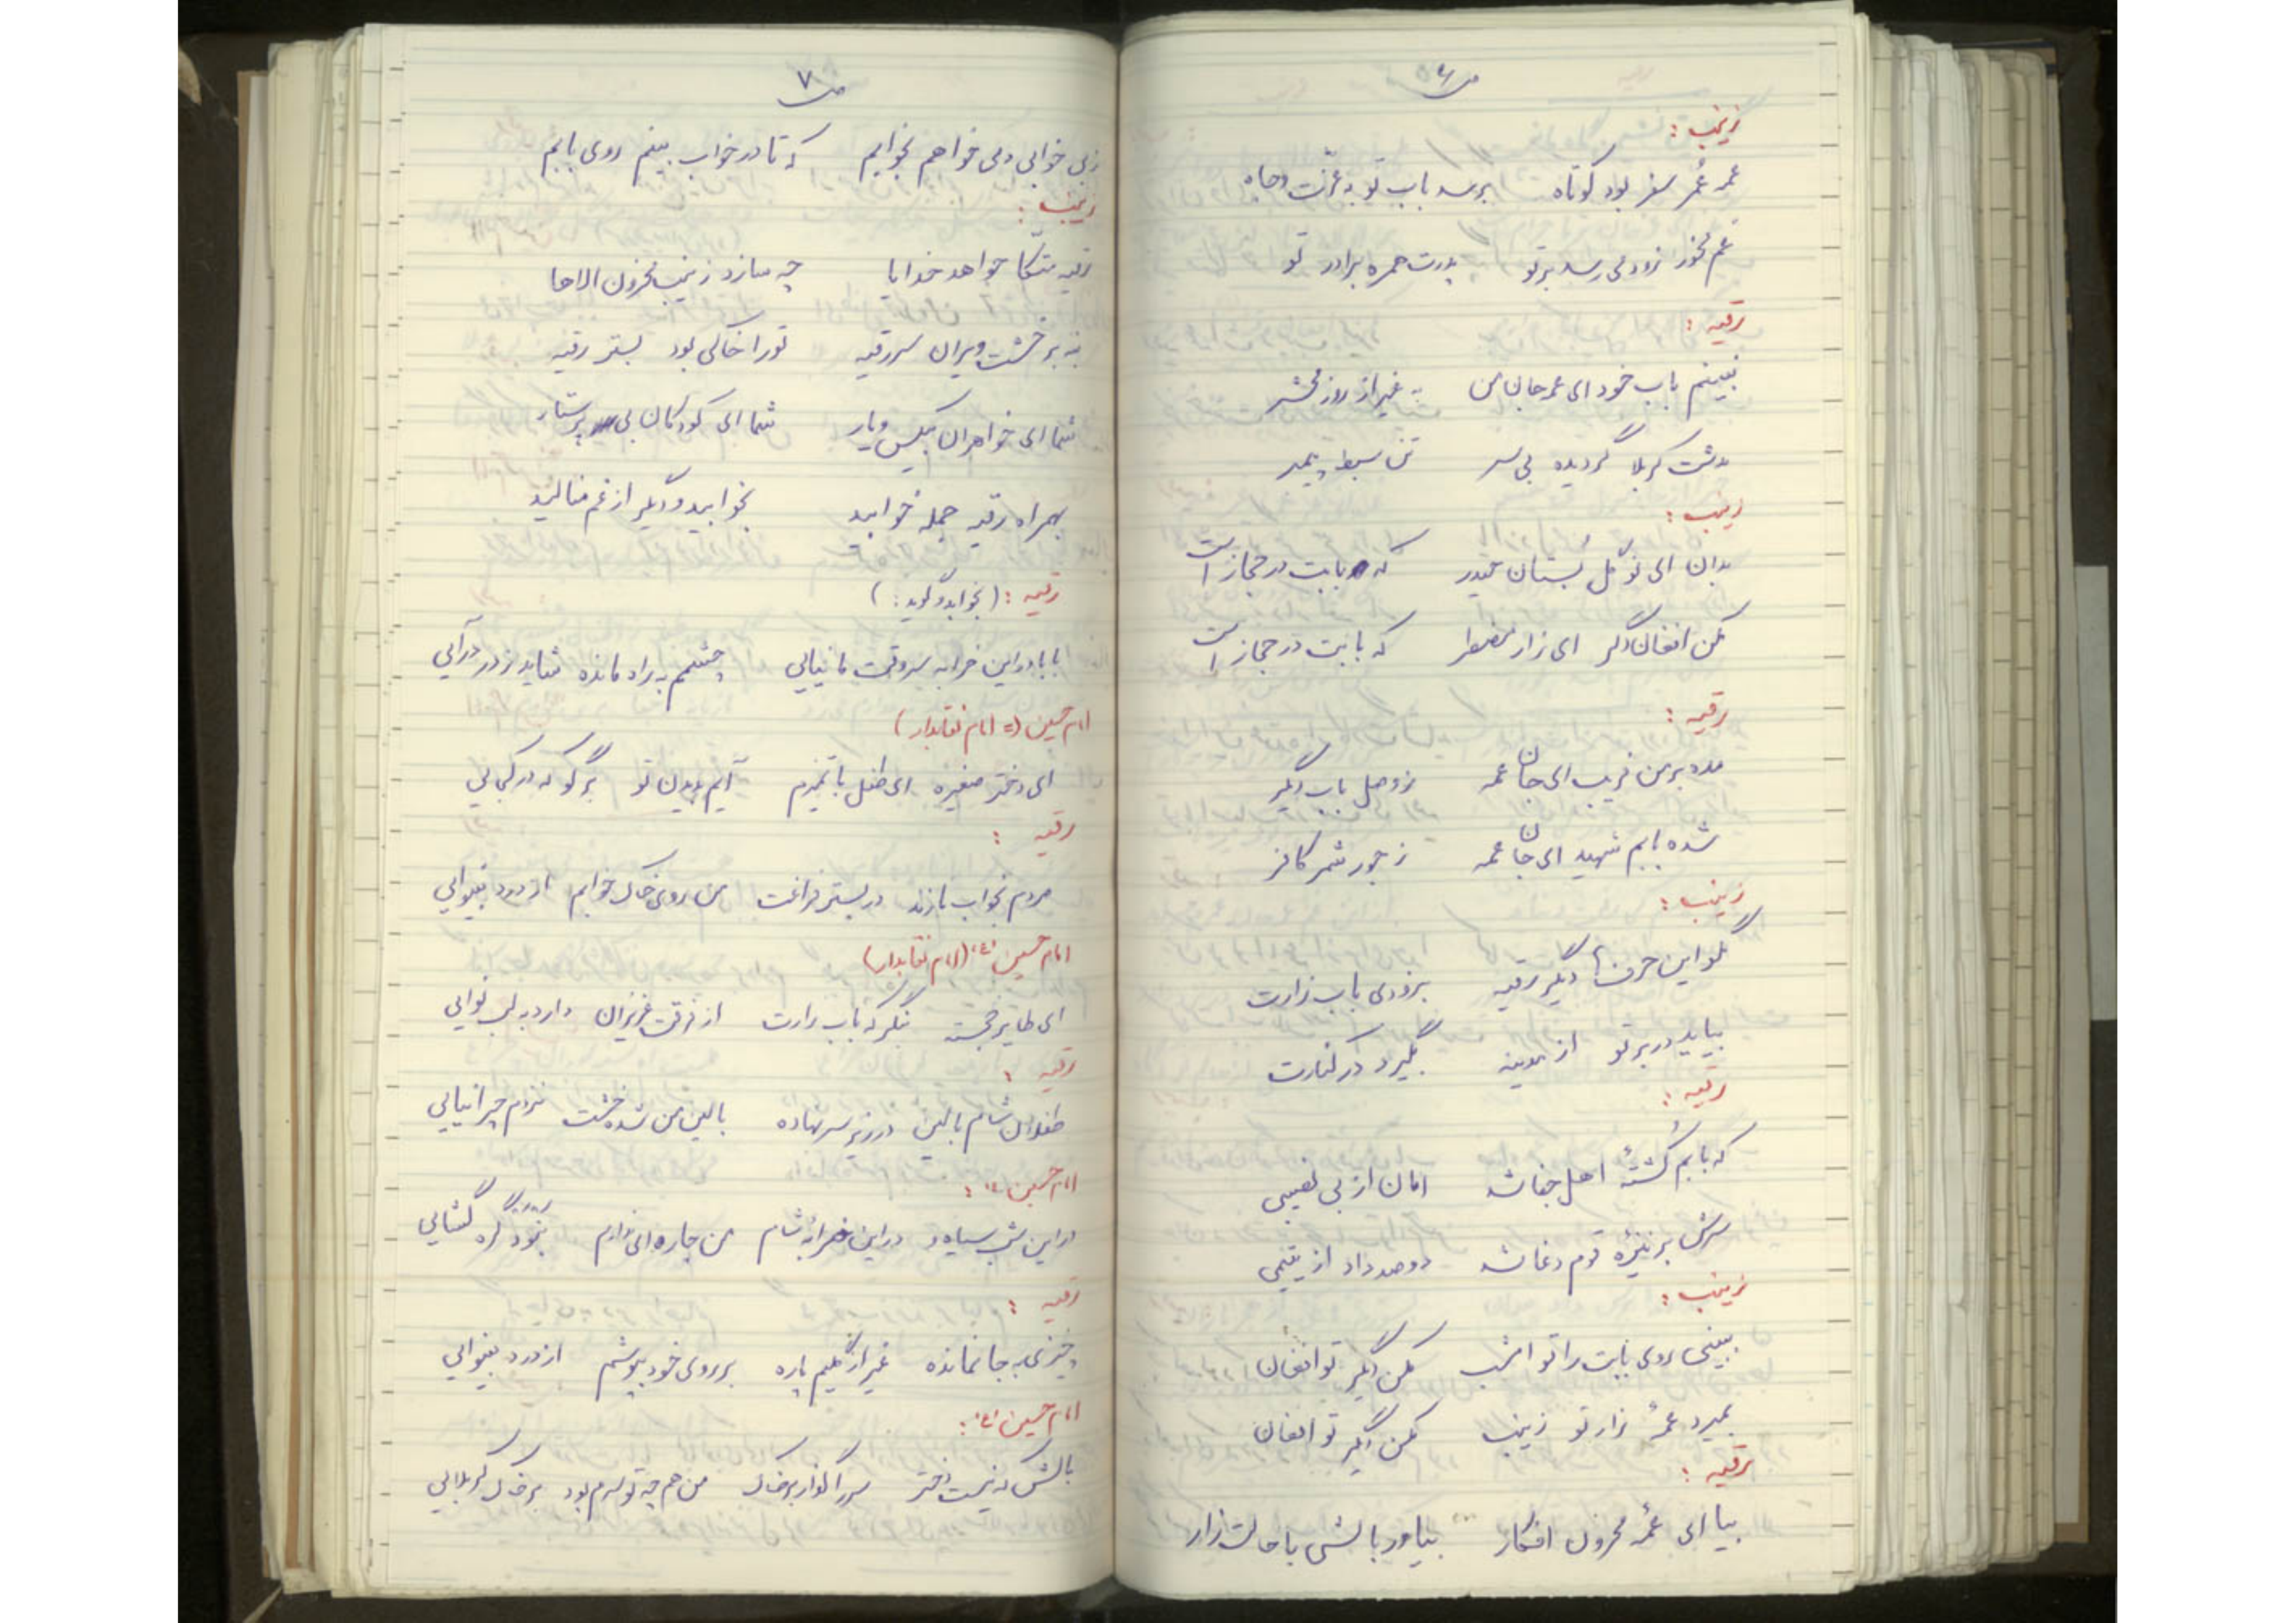 ص۶
زینب :
عمه عُمر سفر بود کوتاه برسد باب تو به عزّت و جاه
غم مخور زود می رسد بر تو پدرت همره برادر تو
رقیه :
نبینم باب خود ای عمه جان من به غیر از روز محشر
بدشت کربلا گردیده بی سر تن سبط پیمبر
زینب :
بدان ای نوگل بُستان حیدر که بابت در حجاز است
مکن افغان دگر ای زار مضطر که بابت در حجاز است
رقیه :
مده بر من فریب ای جان عمه ز وصل باب دیگر
شده بابم شهید ای جان عمه ز جور شمر کافر
زینب :
مگو این حرفها دیگر رقیه بزودی باب زارت
بیاید در بر تو از مدینه بگیرد در کنارت
رقیه :
که بابم کُشتهٔ اهل جفا شد امان از بی نصیبی
سرش بر نیزهٔ قوم دغا شد دو صد داد از یتیمی
زینب :
ببینی روی بابت را تو امشب مکن دیگر تو افغان
بمیرد عمّهٔ زار تو زینب مکن دیگر تو افغان
رقیه :
بیا ای عمّهٔ محزون افکار بیاور بالشی با حالت زار
ص۷
ز بی خوابی دمی خواهم بخوابم که تا در خواب بینم روی بابم
زینب :
رقیه متّکا خواهد خدایا چه سازد زینب محزون الاها
بنه بر خشت ویران سر رقیه تو را خاکی بود بستر رقیه
شما ای خواهران بیکس و یار شما ای کودکان بی پرستار
بهمراه رقیه جمله خوابید بخوابید و دیگر از غم منالید
رقیه : (بخوابد و گوید : )
بابا در این خرابه سروقت ما نیایی چشمم به راه مانده شاید ز در درآیی
امام حسین (= امام نقابدار)
ای دختر صغیره ای طفل با تمیزم آیم بدیدن تو برگو که در کجایی
رقیه :
مردم بخواب نازند در بستر فراغت من روی خاک خوابم از درد بینوایی
امام حسین (ع) (امام نقابدار)
ای طایر خجسته بنگر که باب زارت از فرقت عزیزان دارد به لب نوایی
رقیه :
طفلان شام بالین در زیر سر نهاده بالین من شده خشت نزدم چرا نیایی
امام حسین (ع) :
در این شب سیاه و در این خرابهٔ شام من چاره ای ندارم نبود گره گشایی
رقیه :
چیزی به جا نمانده غیر از گلیم پاره بر روی خود بپوشم از درد بینوایی
امام حسین (ع) :
بالش که نیست دختر سر را گذار بر خاک من هم چو تو سرم بود بر خاک کربلایی